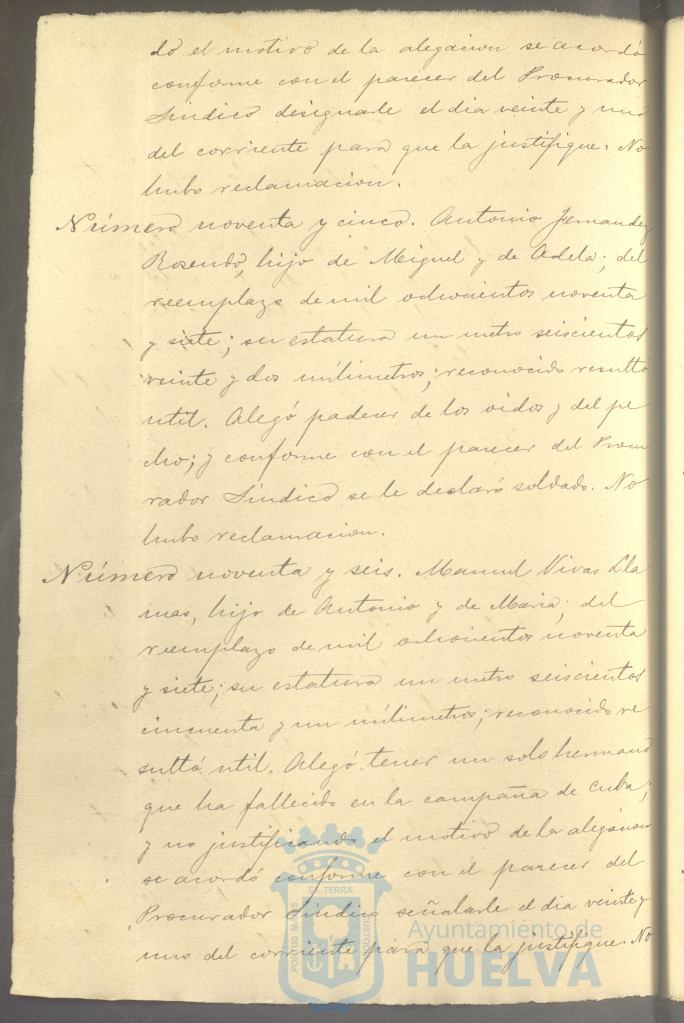 do el motivo de la alegacion se acordó
conforme con el parecer del Procurador
Síndico designarle el dia veinte y uno
del corriente para que la justifique. No
hubo reclamacion.
Número noventa y cinco. Antonio Fernandez
Rosendo, hijo de Miguel y de Adela; del
reemplazo de mil ochocientos noventa
y siete; su estatura un metro seiscientos
veinte y dos milimetros; reconocido resultó
util. Alegó padecer de los oidos y del pe
cho; y conforme con el parecer del Procu
rador Síndico se le declaró soldado. No
hubo reclamacion.
Número noventa y seis. Manuel Vivas Lla
mas, hijo de Antonio y de Maria; del
reemplazo de mil ochocientos noventa
y siete; su estatura un metro seiscientos
cincuenta y un milimetros; reconocido re
sultó util. Alegó tener un solo hermano
que ha fallecido en la campaña de Cuba;
y no justificando el motivo de la alegacion
se acordó conforme con el parecer del
Procurador Síndico señalarle el dia veinte y
uno del corriente para que la justifique. No
ET TERRÆ
PORTUS MARIS
CUSTODIA
Ayuntamiento de
HUELVA